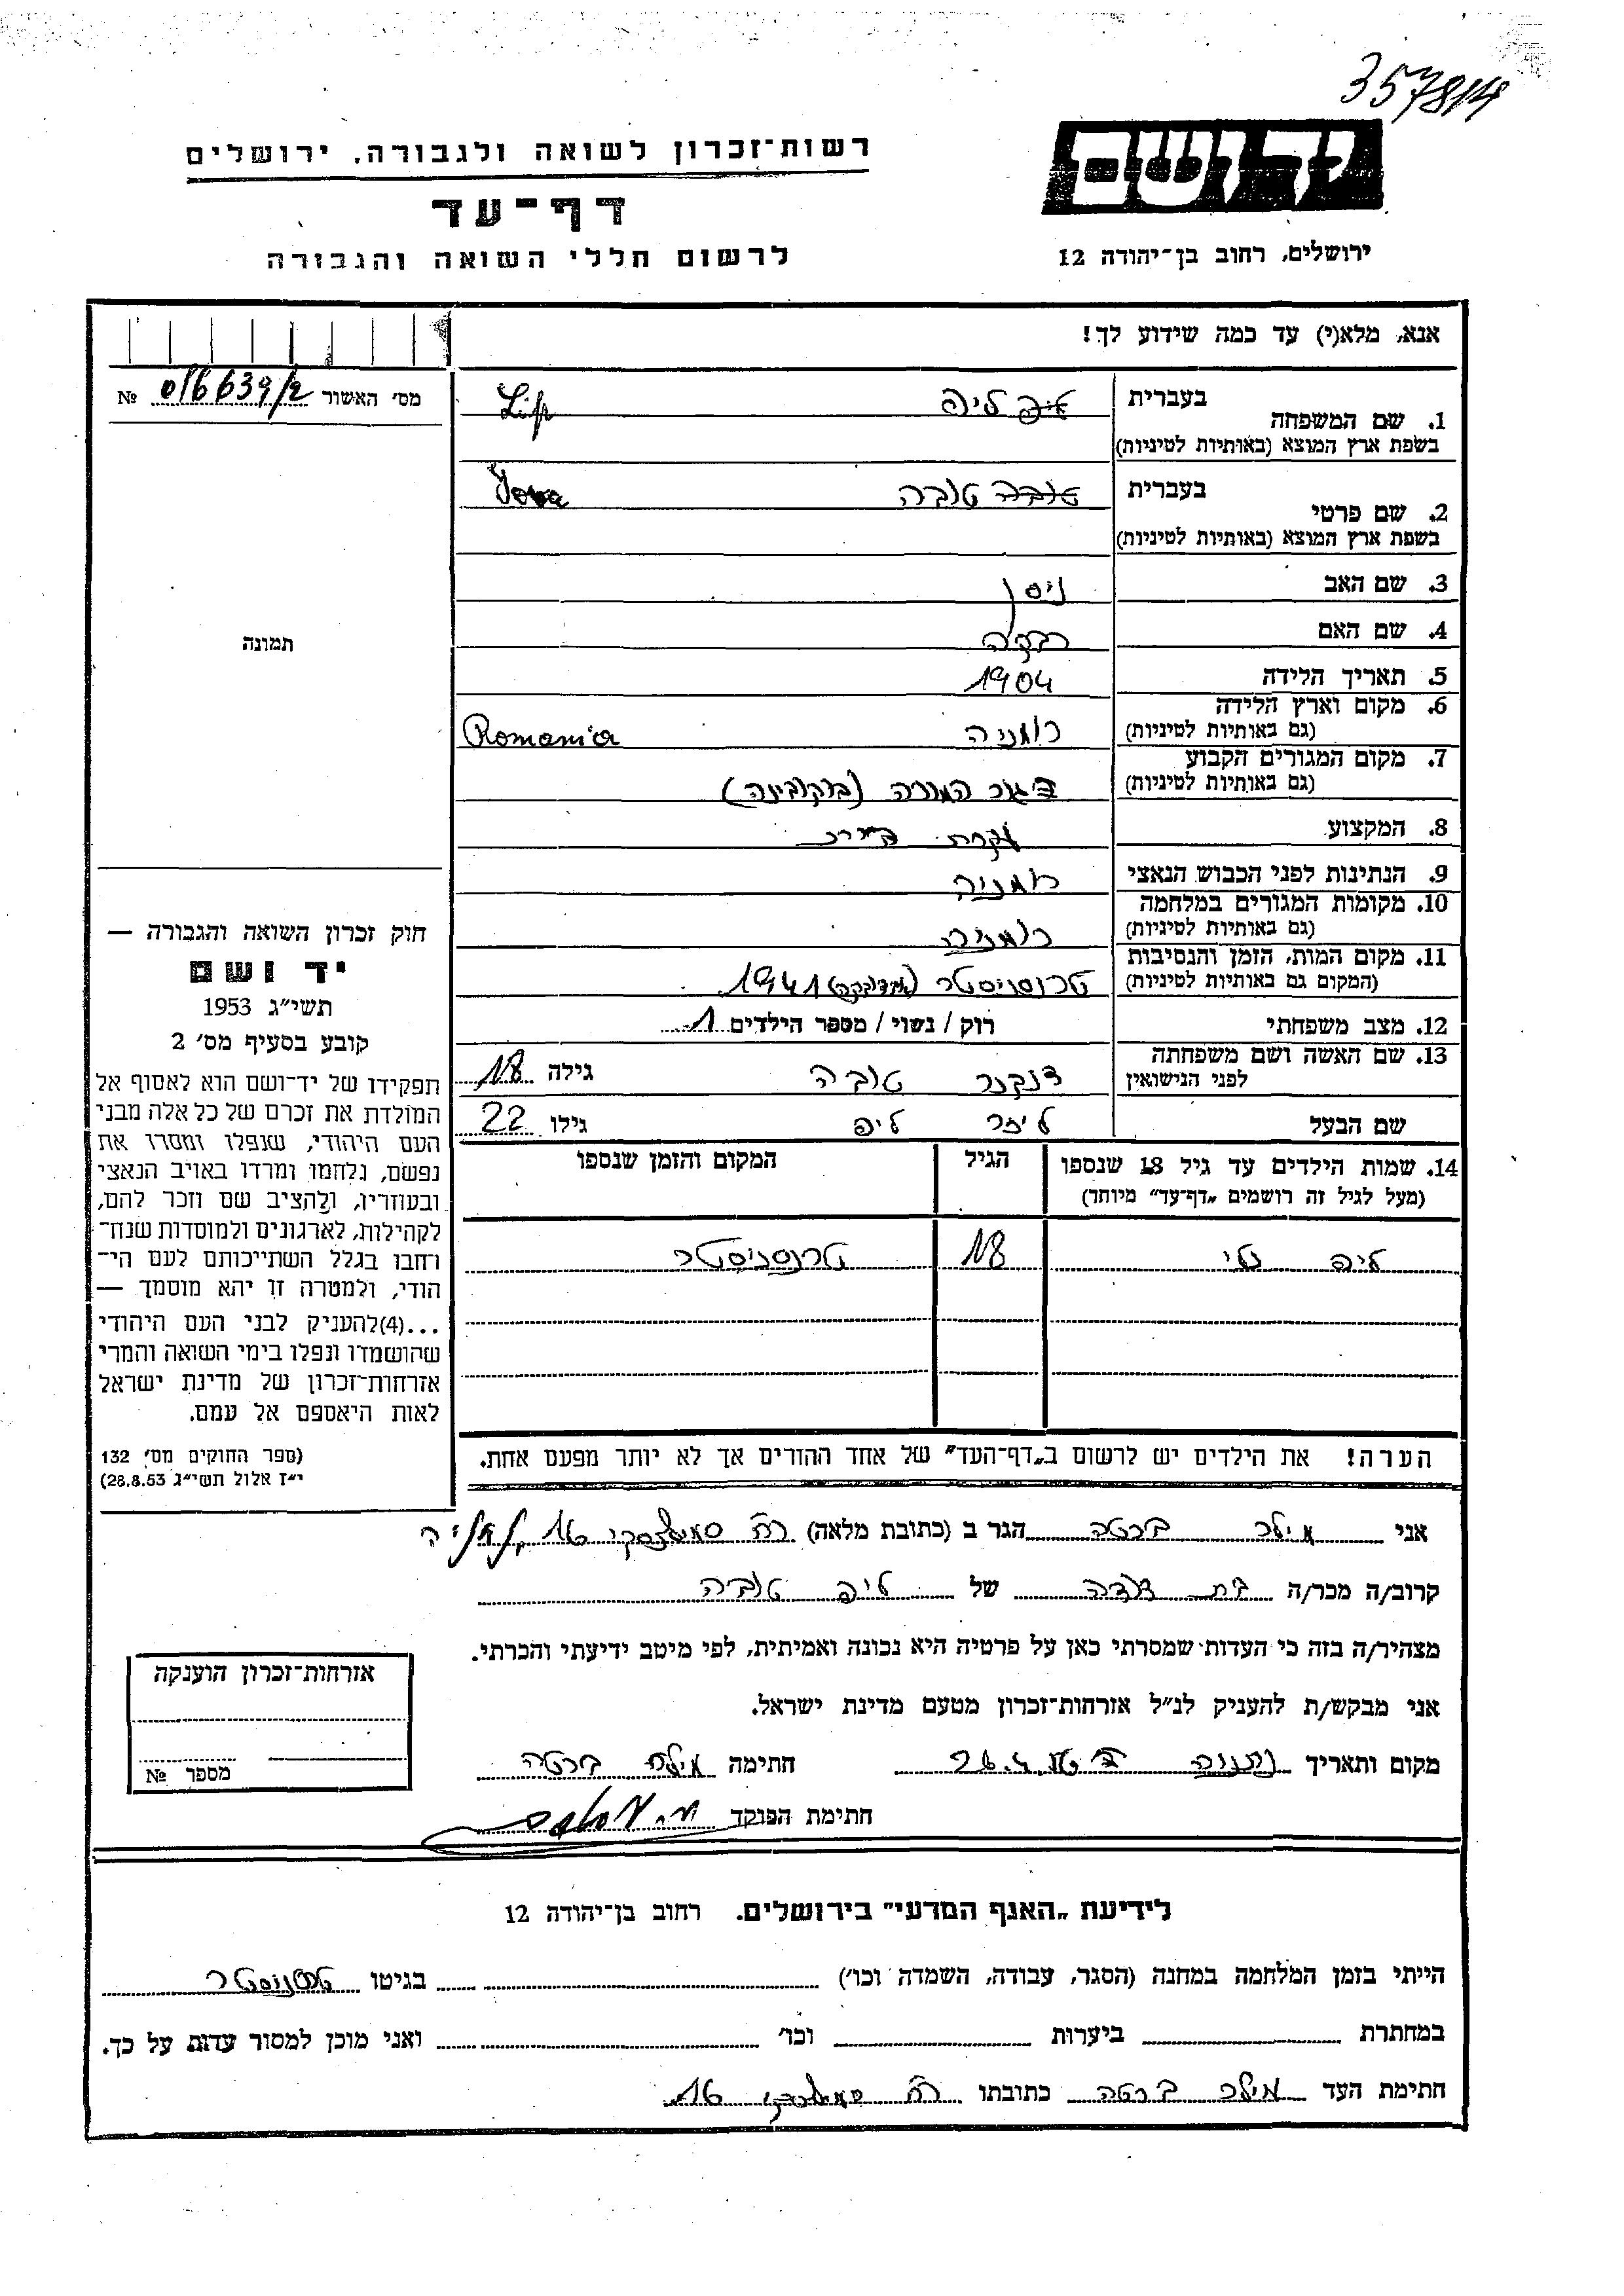 357814
יד ושם
רשות־זכרון לשואה ולגבורה, ירושלים
דף־עד
לרשום חללי השואה והגבורה
ירושלים, רחוב בן־יהודה 12
אנא, מלא(י) עד כמה שידוע לך!
מס' האשור 016639/2 №
תמונה
1. שם המשפחה בעברית ליפ Lip
בשפת ארץ המוצא (באותיות לטיניות)
2. שם פרטי בעברית טובה
בשפת ארץ המוצא (באותיות לטיניות)
3. שם האב ניסן
4. שם האם רבקה
5. תאריך הלידה 1904
6. מקום וארץ הלידה רומניה Romania
(גם באותיות לטיניות)
7. מקום המגורים הקבוע (בוקובינה)
(גם באותיות לטיניות)
8. המקצוע עקרת בית
9. הנתינות לפני הכבוש הנאצי רומניה
10. מקומות המגורים במלחמה רומניה
(גם באותיות לטיניות)
11. מקום המות, הזמן והנסיבות טרנסניסטר 1941
(המקום גם באותיות לטיניות)
12. מצב משפחתי רוק / נשוי / מספר הילדים 1
13. שם האשה ושם משפחתה לפני הנישואין טובה גילה 18
שם הבעל ליפ גילו 22
14. שמות הילדים עד גיל 18 שנספו הגיל המקום והזמן שנספו
(מעל לגיל זה רושמים „דף־עד" מיוחד)
ליפ 18 טרנסניסטר
הערה! את הילדים יש לרשום ב„דף־העד" של אחד ההורים אך לא יותר מפעם אחת.
חוק זכרון השואה והגבורה —
יד ושם
תשי"ג 1953
קובע בסעיף מס' 2
תפקידו של יד־ושם הוא לאסוף אל
המולדת את זכרם של כל אלה מבני
העם היהודי, שנפלו ומסרו את
נפשם, נלחמו ומרדו באויב הנאצי
ובעוזריו, ולהציב שם וזכר להם,
לקהילות, לארגונים ולמוסדות שנח־
רחבו בגלל השתייכותם לעם הי־
הודי, ולמטרה זו יהא מוסמך —
...(4)להעניק לבני העם היהודי
שהושמדו ונפלו בימי השואה והמרי
אזרחות־זכרון של מדינת ישראל
לאות היאספם אל עמם.
(ספר החוקים מס' 132
י"ז אלול תשי"ג 28.8.53)
אני מילר ברטה הגר ב (כתובת מלאה) רח סמילנסקי
קרוב/ה מכר/ה בת דודה של ליפ טובה
מצהיר/ה בזה כי העדות שמסרתי כאן על פרטיה היא נכונה ואמיתית, לפי מיטב ידיעתי והכרתי.
אני מבקש/ת להעניק לנ"ל אזרחות־זכרון מטעם מדינת ישראל.
מקום ותאריך נתניה חתימה מילר ברטה
חתימת הפוקד
אזרחות־זכרון הוענקה
מספר №
לידיעת „האגף המדעי" בירושלים. רחוב בן־יהודה 12
הייתי בזמן המלחמה במחנה (הסגר, עבודה, השמדה וכו') בגיטו טרנסניסטר
במחתרת ביערות וכו' ואני מוכן למסור עדות על כך.
חתימת העד מילר ברטה כתובתו רח סמילנסקי